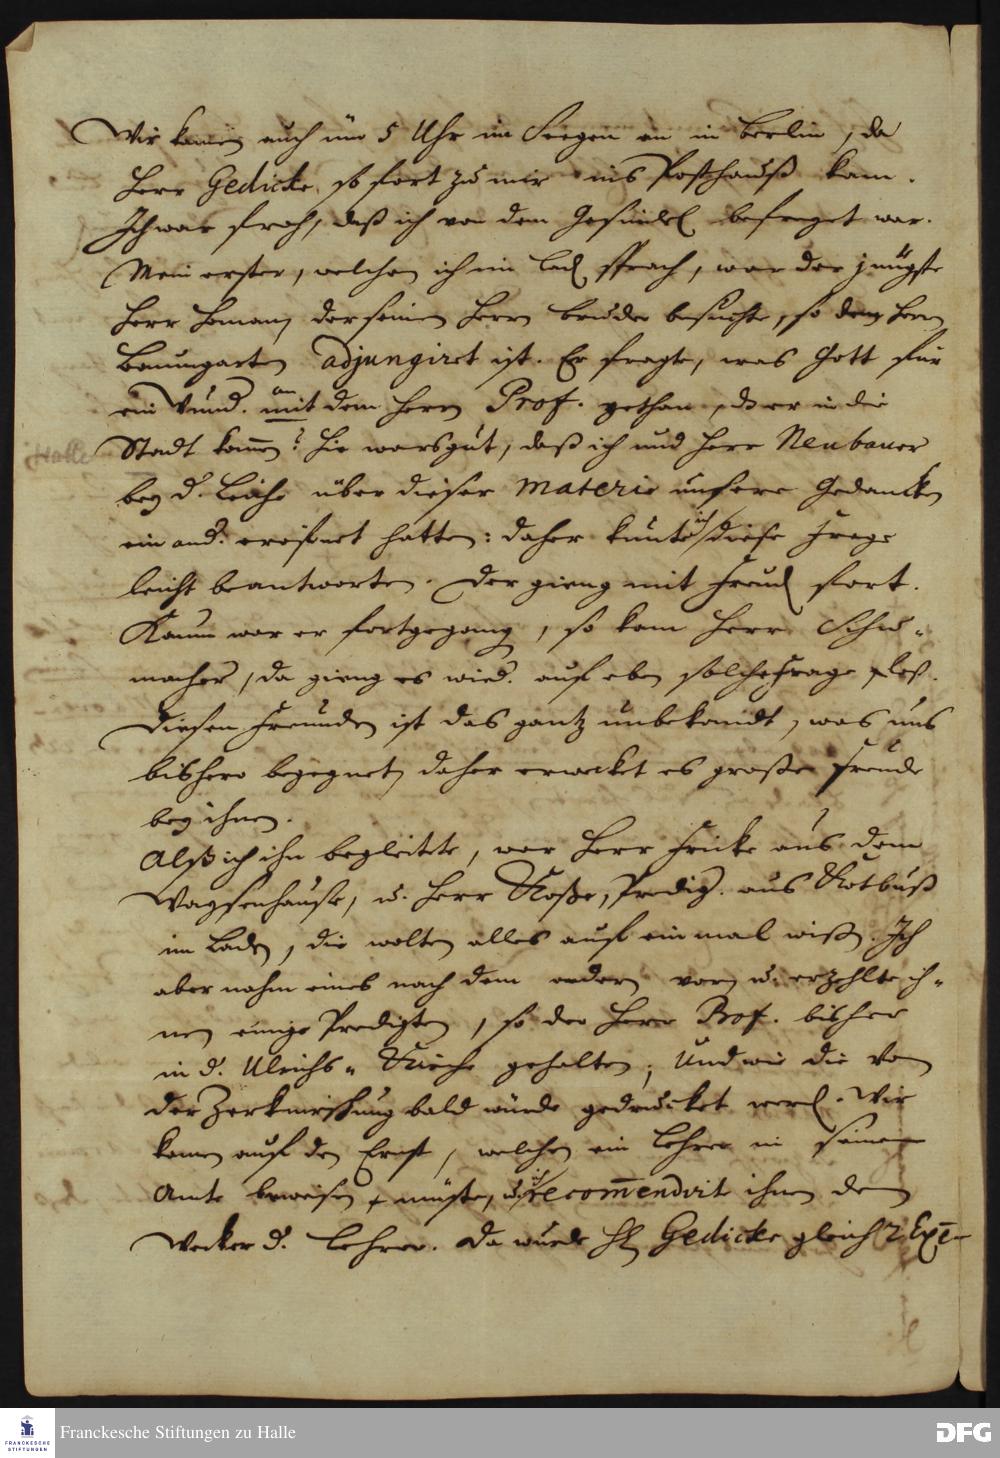 Wir kamen auch üm 5 Uhr im Seegen an in Berlin, da
Herr Gedicke sofort zu mir ins Posthauß kam.
Ich war froh, daß ich von dem Gesindel befreyet war.
Mein erster, welchen ich im Lad. sprach, war der jüngste
Herr Homann, der seinen Herrn Bruder besuchte, so dem Herrn
Baumgarten adjungiret ist. Er fragte, was Gott für
ein Wund. mit an dem Herrn Prof. gethan, da er in die
Stadt komen? Hie wars gut, daß ich und Herr Neubauer
Halle
bey d. Leiche über dieser Materie unsere Gedancken
ein and. eröfnet hatten: daher kunte ich diese Frage
leicht beantworten. Der gieng mit Freud. fort.
Kaum war er fortgegang, so kam Herr Schu-
macher, da gieng es wied. auf eben solche Frage loß.
Diesen Freunden ist das gantz unbekandt, was uns
bishero begegnet, daher erwecket es große Freude
bey ihnen.
Alß ich ihn begleitete, war Herr Fricke aus dem
Waysenhause, u. Herr Kose, Predig. aus Kotbuß
im Laden, die wolten alles auf ein mal wißen. Ich
aber nahm eines nach dem andern vor, u. erzehlte ih-
nen einige Predigten, so der Herr Prof. bisher
in d. Ulrichs-Kirche gehalten, Und wie die von
der Zerknirschung bald würde gedrucket werd. Wir
kamen auf den Ernst, welchen ein Lehrer in seinem
Amte beweisen müste, u. ich recommendirte ihnen den
Wecker d. Lehrer. Da wurde H. Gedicke gleich 2 Exe-
Franckesche Stiftungen zu Halle
FRANCKESCHE
STIFTUNGEN
DFG